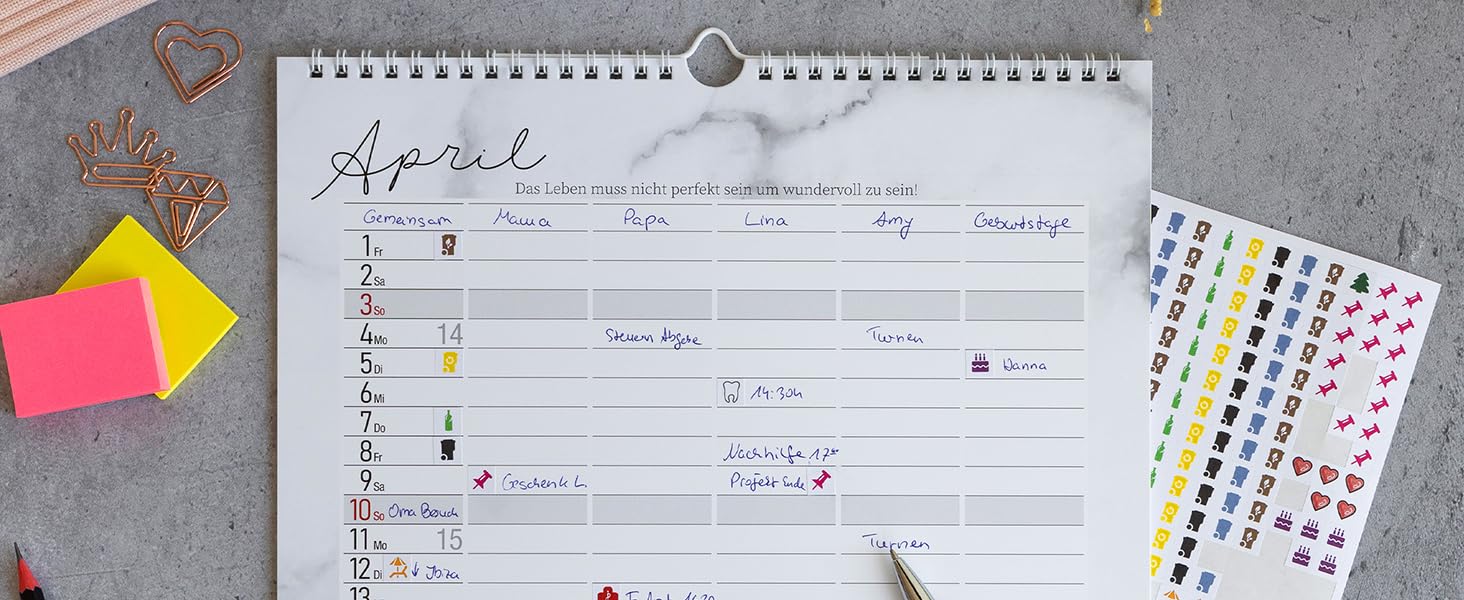 April
Das Leben muss nicht perfekt sein um wundervoll zu sein!
Gemeinsam Mama Papa Lina Amy Geburtstage
1 Fr
2 Sa
3 So
4 Mo 14 Steuern Abgabe Turnen
5 Di Hanna
6 Mi 14:30h
7 Do
8 Fr Nachhilfe 17⁰⁰
9 Sa Geschenk L. Projekt Ende
10 So Oma Besuch
11 Mo 15 Turnen
12 Di ↓ Ibiza
13